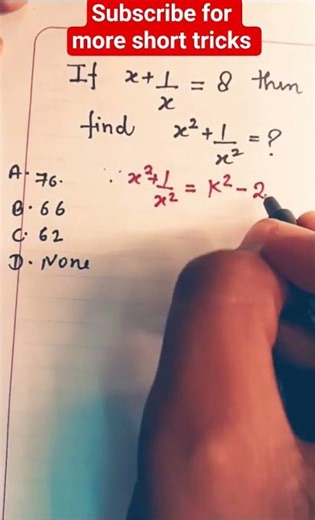 Subscribe for
more short tricks
If x+1/x = 8 then
find x²+1/x² = ?
A. 76.
B. 66
C. 62
D. None
∵ x²+1/x² = k²-2